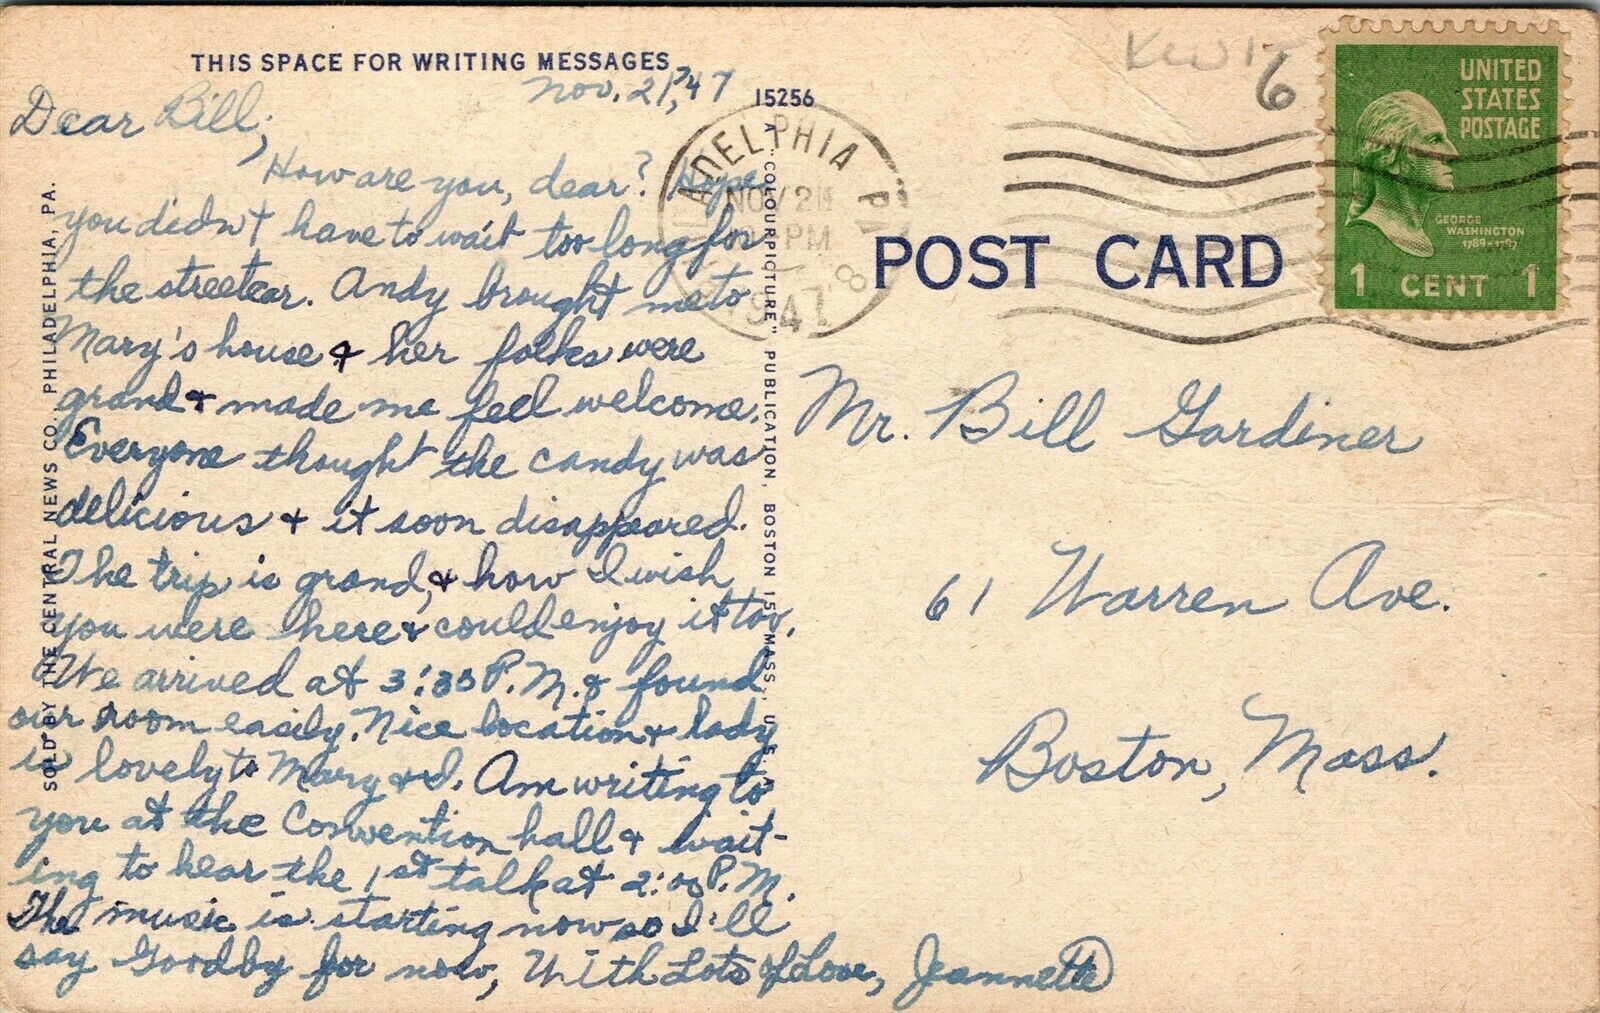 THIS SPACE FOR WRITING MESSAGES
Nov. 21, '47
Dear Bill,
How are you, dear? Hope
you didn't have to wait too long for
the streetcar. Andy brought me to
Mary's house & her folks were
grand & made me feel welcome.
Everyone thought the candy was
delicious & it soon disappeared.
The trip is grand, & how I wish
you were here & could enjoy it too.
We arrived at 3:35 P.M. & found
our room easily. Nice location & lady
is lovely to Mary & I. Am writing to
you at the Convention hall & wait-
ing to hear the 1st talk at 2:00 P.M.
The music is starting now so I'll
say Goodby for now, With Lots of Love, Jeannette
SOLD BY THE CENTRAL NEWS CO., PHILADELPHIA, PA.
15256
A "COLOURPICTURE" PUBLICATION, BOSTON 15, MASS., U.S.A.
ADELPHIA PA
NOV 21
PM
1947
POST CARD
6
UNITED
STATES
POSTAGE
GEORGE
WASHINGTON
1789-1797
1 CENT 1
Mr. Bill Gardiner
61 Warren Ave.
Boston, Mass.